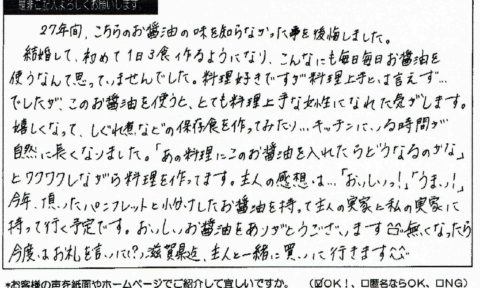 是非ご記入よろしくお願いします
27年間、こちらのお醤油の味を知らなかった事を後悔しました。
結婚して、初めて1日3食作るようになり、こんなにも毎日毎日お醤油を
使うなんて思っていませんでした。料理好きですが料理上手とは言えず…
でしたが、このお醤油を使うと、とても料理上手な女性になれた気がします。
嬉しくなって、しぐれ煮などの保存食を作ってみたり…キッチンにいる時間が
自然に長くなりました。「あの料理にこのお醤油を入れたらどうなるのかな」
とワクワクしながら料理を作ってます。主人の感想は…「おいしいっ!」「うまいっ!」
今年、頂いたパンフレットと小分けしたお醤油を持って主人の実家と私の実家に
持って行く予定です。おいしいお醤油をありがとうございます 無くなったら
今度はお礼を言いに(?)滋賀県迄、主人と一緒に買いに行きます
*お客様の声を紙面やホームページでご紹介して宜しいですか。 (☑OK!、□匿名ならOK、□NG)